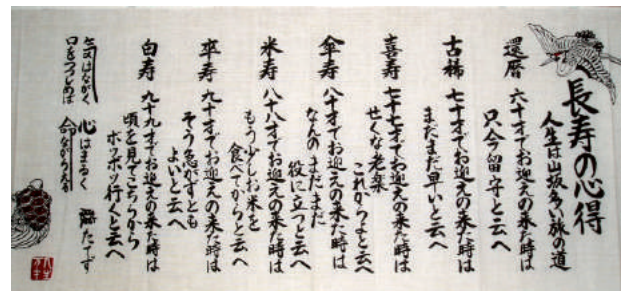 長寿の心得
人生は山坂多い旅の道
還暦 六十才でお迎えの来た時は
只今留守と云へ
古稀 七十才でお迎えの来た時は
まだまだ早いと云へ
喜寿 七十七才でお迎えの来た時は
せくな老楽
これからよと云へ
傘寿 八十才でお迎えの来た時は
なんのまだまだ
役に立つと云へ
米寿 八十八才でお迎えの来た時は
もう少しお米を
食べてからと云へ
卒寿 九十才でお迎えの来た時は
そう急がずとも
よいと云へ
白寿 九十九才でお迎えの来た時は
頃を見てこちらから
ボツボツ行くと云へ
気はながく 心はまるく たてず
口をつつしめば 命ながらえる